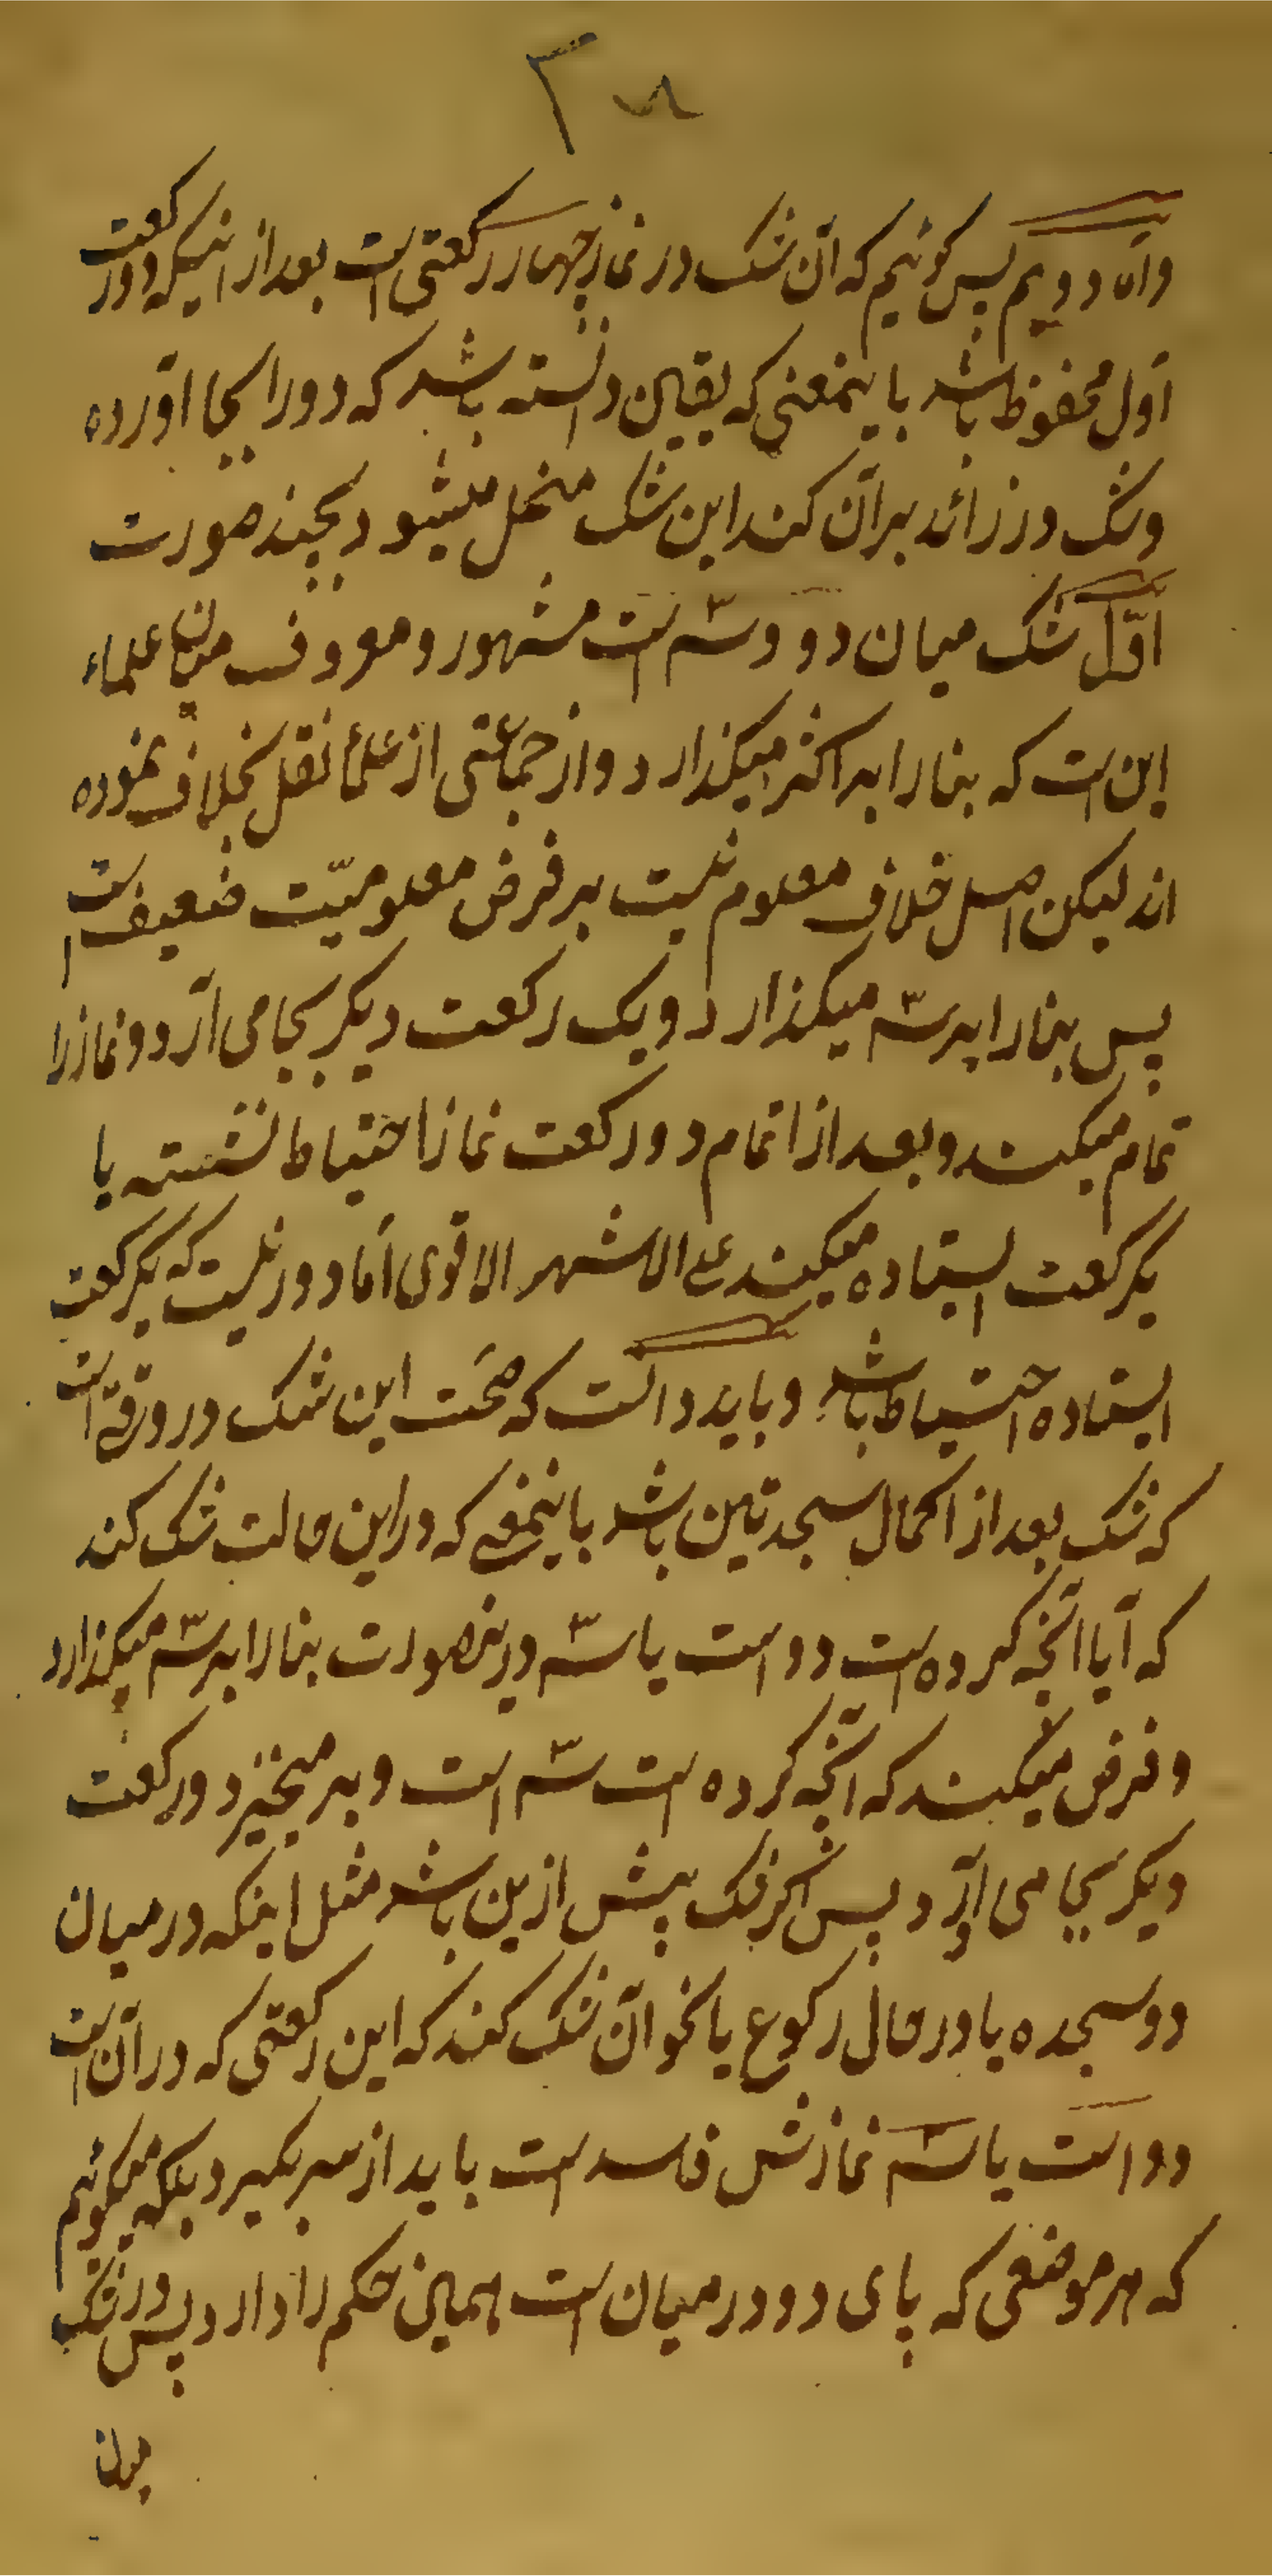 واما دویم پس کوئیم که آن شک در نماز چهار رکعتی است بعد از اینکه دو رکعت
اول محفوظ باشد باینمعنی که بیقین دانسته باشد که دو را بجا آورده
وشک در زائد بر آن کند این شک منحل میشود بچند صورت
اوّل شک میان دو وسّه است مشهور و معروف میان علماء
این است که بنا را بر اکثر میکذارد و از جماعتی از علما نقل بخلاف نموده
اند لیکن اصل خلاف معلوم نیست بر فرض معلومیّت ضعیف است
پس بنا را بر سّه میکذارد و یک رکعت دیکر بجا می آرد و نماز را
تمام میکند و بعد از اتمام دو رکعت نماز احتیاط نشسته یا
یکرکعت ایستاده میکند علی الاشهر الاقوی امّا دور نیست که یکرکعت
ایستاده احتیاط باشد و باید دانست که صحّت این شک در وقتی است
که شک بعد از اکمال سجدتین باشد باینمعنی که در این حالت شک کند
که آیا آنچه کرده است دو است یا سّه درینصورت بنا را بر سّه میکذارد
و فرض میکند که آنچه کرده است سّه است و بر میخیزد و رکعت
دیکر بجا می آرد پس اکر شک پیش ازین باشد مثل اینکه در میان
دو سجده یا در حال رکوع یا نحو آن شک کند که این رکعتی که در آن است
دو است یا سّه نمازش فاسد است باید از سر بکیرد بلکه میکوئیم
که هر موضعی که پای دو در میان است همین حکم را دارد پس در شک
میان